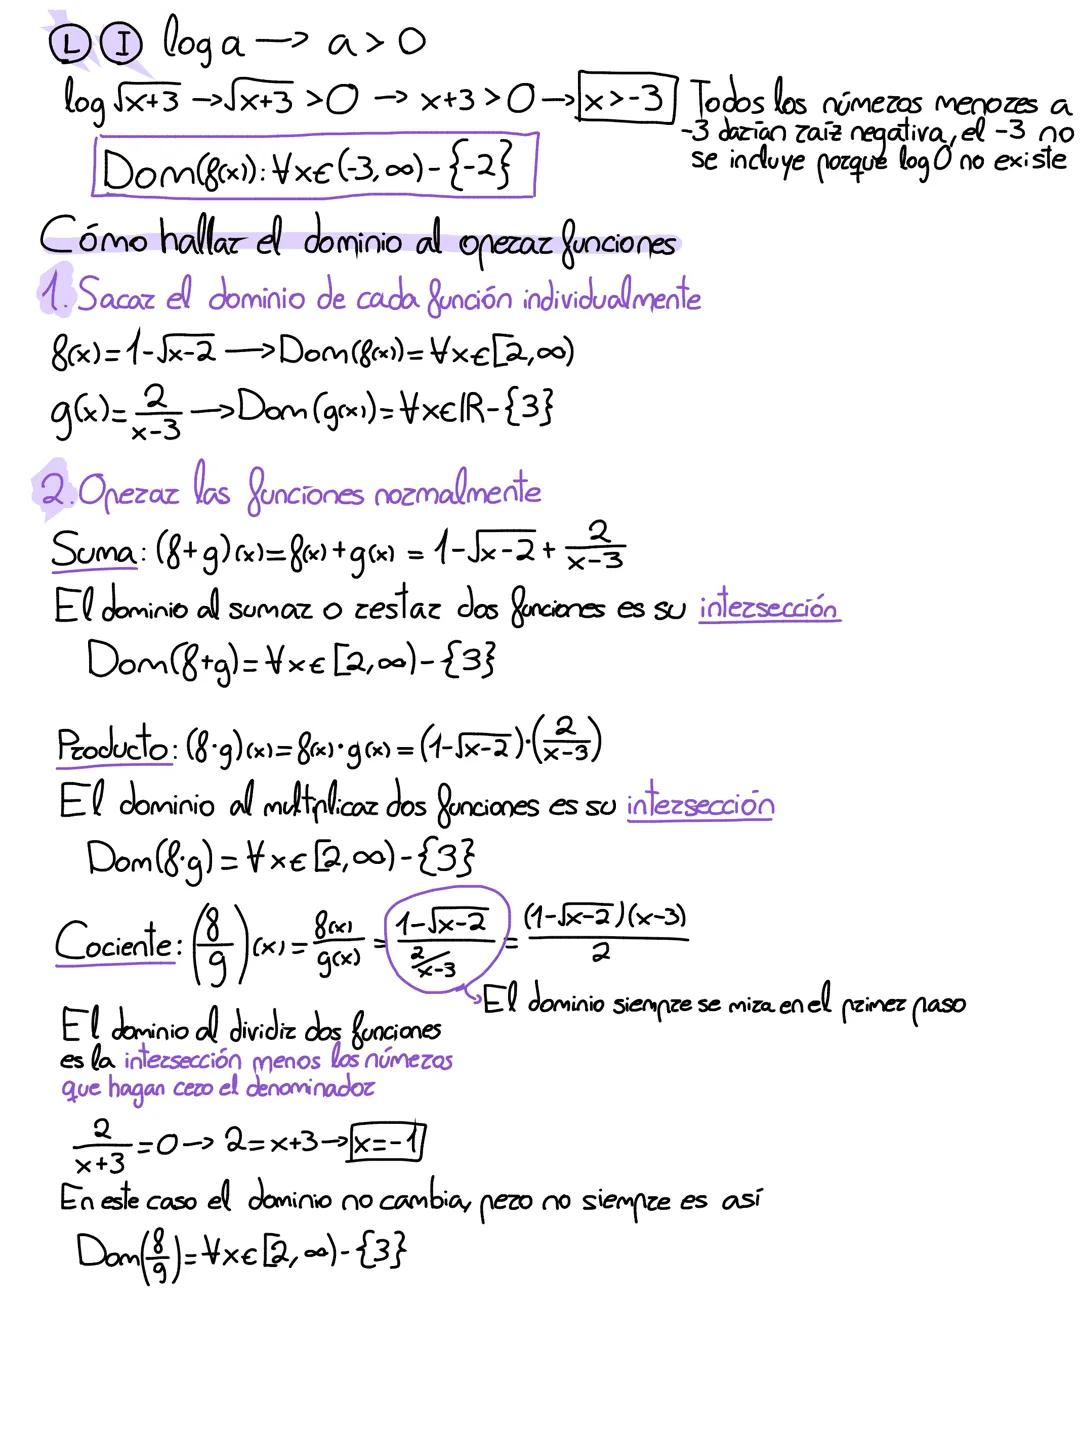 Ⓛ Ⓘ log a → a > 0
log √x+3 → √x+3 > 0 → x+3 > 0 → x > -3 Todos los números menores a
-3 darían raíz negativa, el -3 no
se incluye porque log 0 no existe
Dom(f(x)): ∀x∈(-3,∞)-{-2}
Cómo hallar el dominio al operar funciones
1. Sacar el dominio de cada función individualmente
f(x)=1-√x-2 → Dom(f(x))=∀x∈[2,∞)
g(x)=2/(x-3) → Dom(g(x))=∀x∈ℝ-{3}
2. Operar las funciones normalmente
Suma: (f+g)(x)=f(x)+g(x) = 1-√x-2 + 2/(x-3)
El dominio al sumar o restar dos funciones es su intersección
Dom(f+g)=∀x∈[2,∞)-{3}
Producto: (f·g)(x)=f(x)·g(x)=(1-√x-2)·(2/(x-3))
El dominio al multiplicar dos funciones es su intersección
Dom(f·g)=∀x∈[2,∞)-{3}
Cociente: (f/g)(x)=f(x)/g(x)=(1-√x-2)/(2/(x-3))=(1-√x-2)(x-3)/2
El dominio siempre se mira en el primer paso
El dominio al dividir dos funciones
es la intersección menos los números
que hagan cero el denominador
2/(x+3)=0 → 2=x+3 → x=-1
En este caso el dominio no cambia, pero no siempre es así
Dom(f/g)=∀x∈[2,∞)-{3}